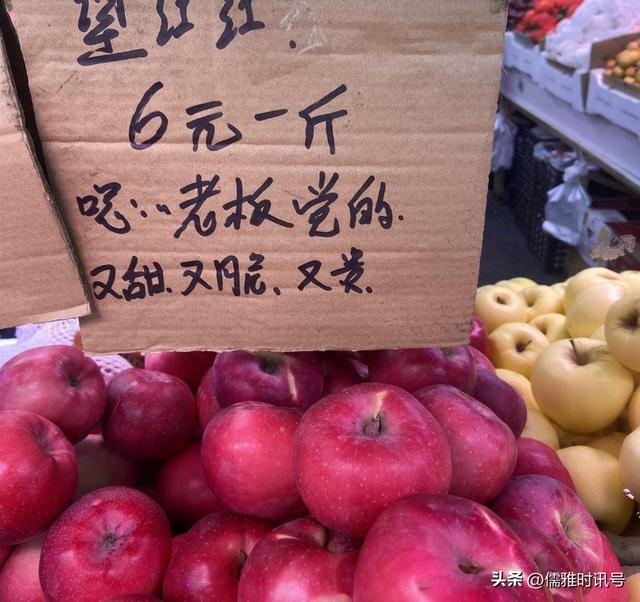 红红.
6元一斤
呃:..老板觉的.
又甜.又脆、又贵.
头条@儒雅时讯号